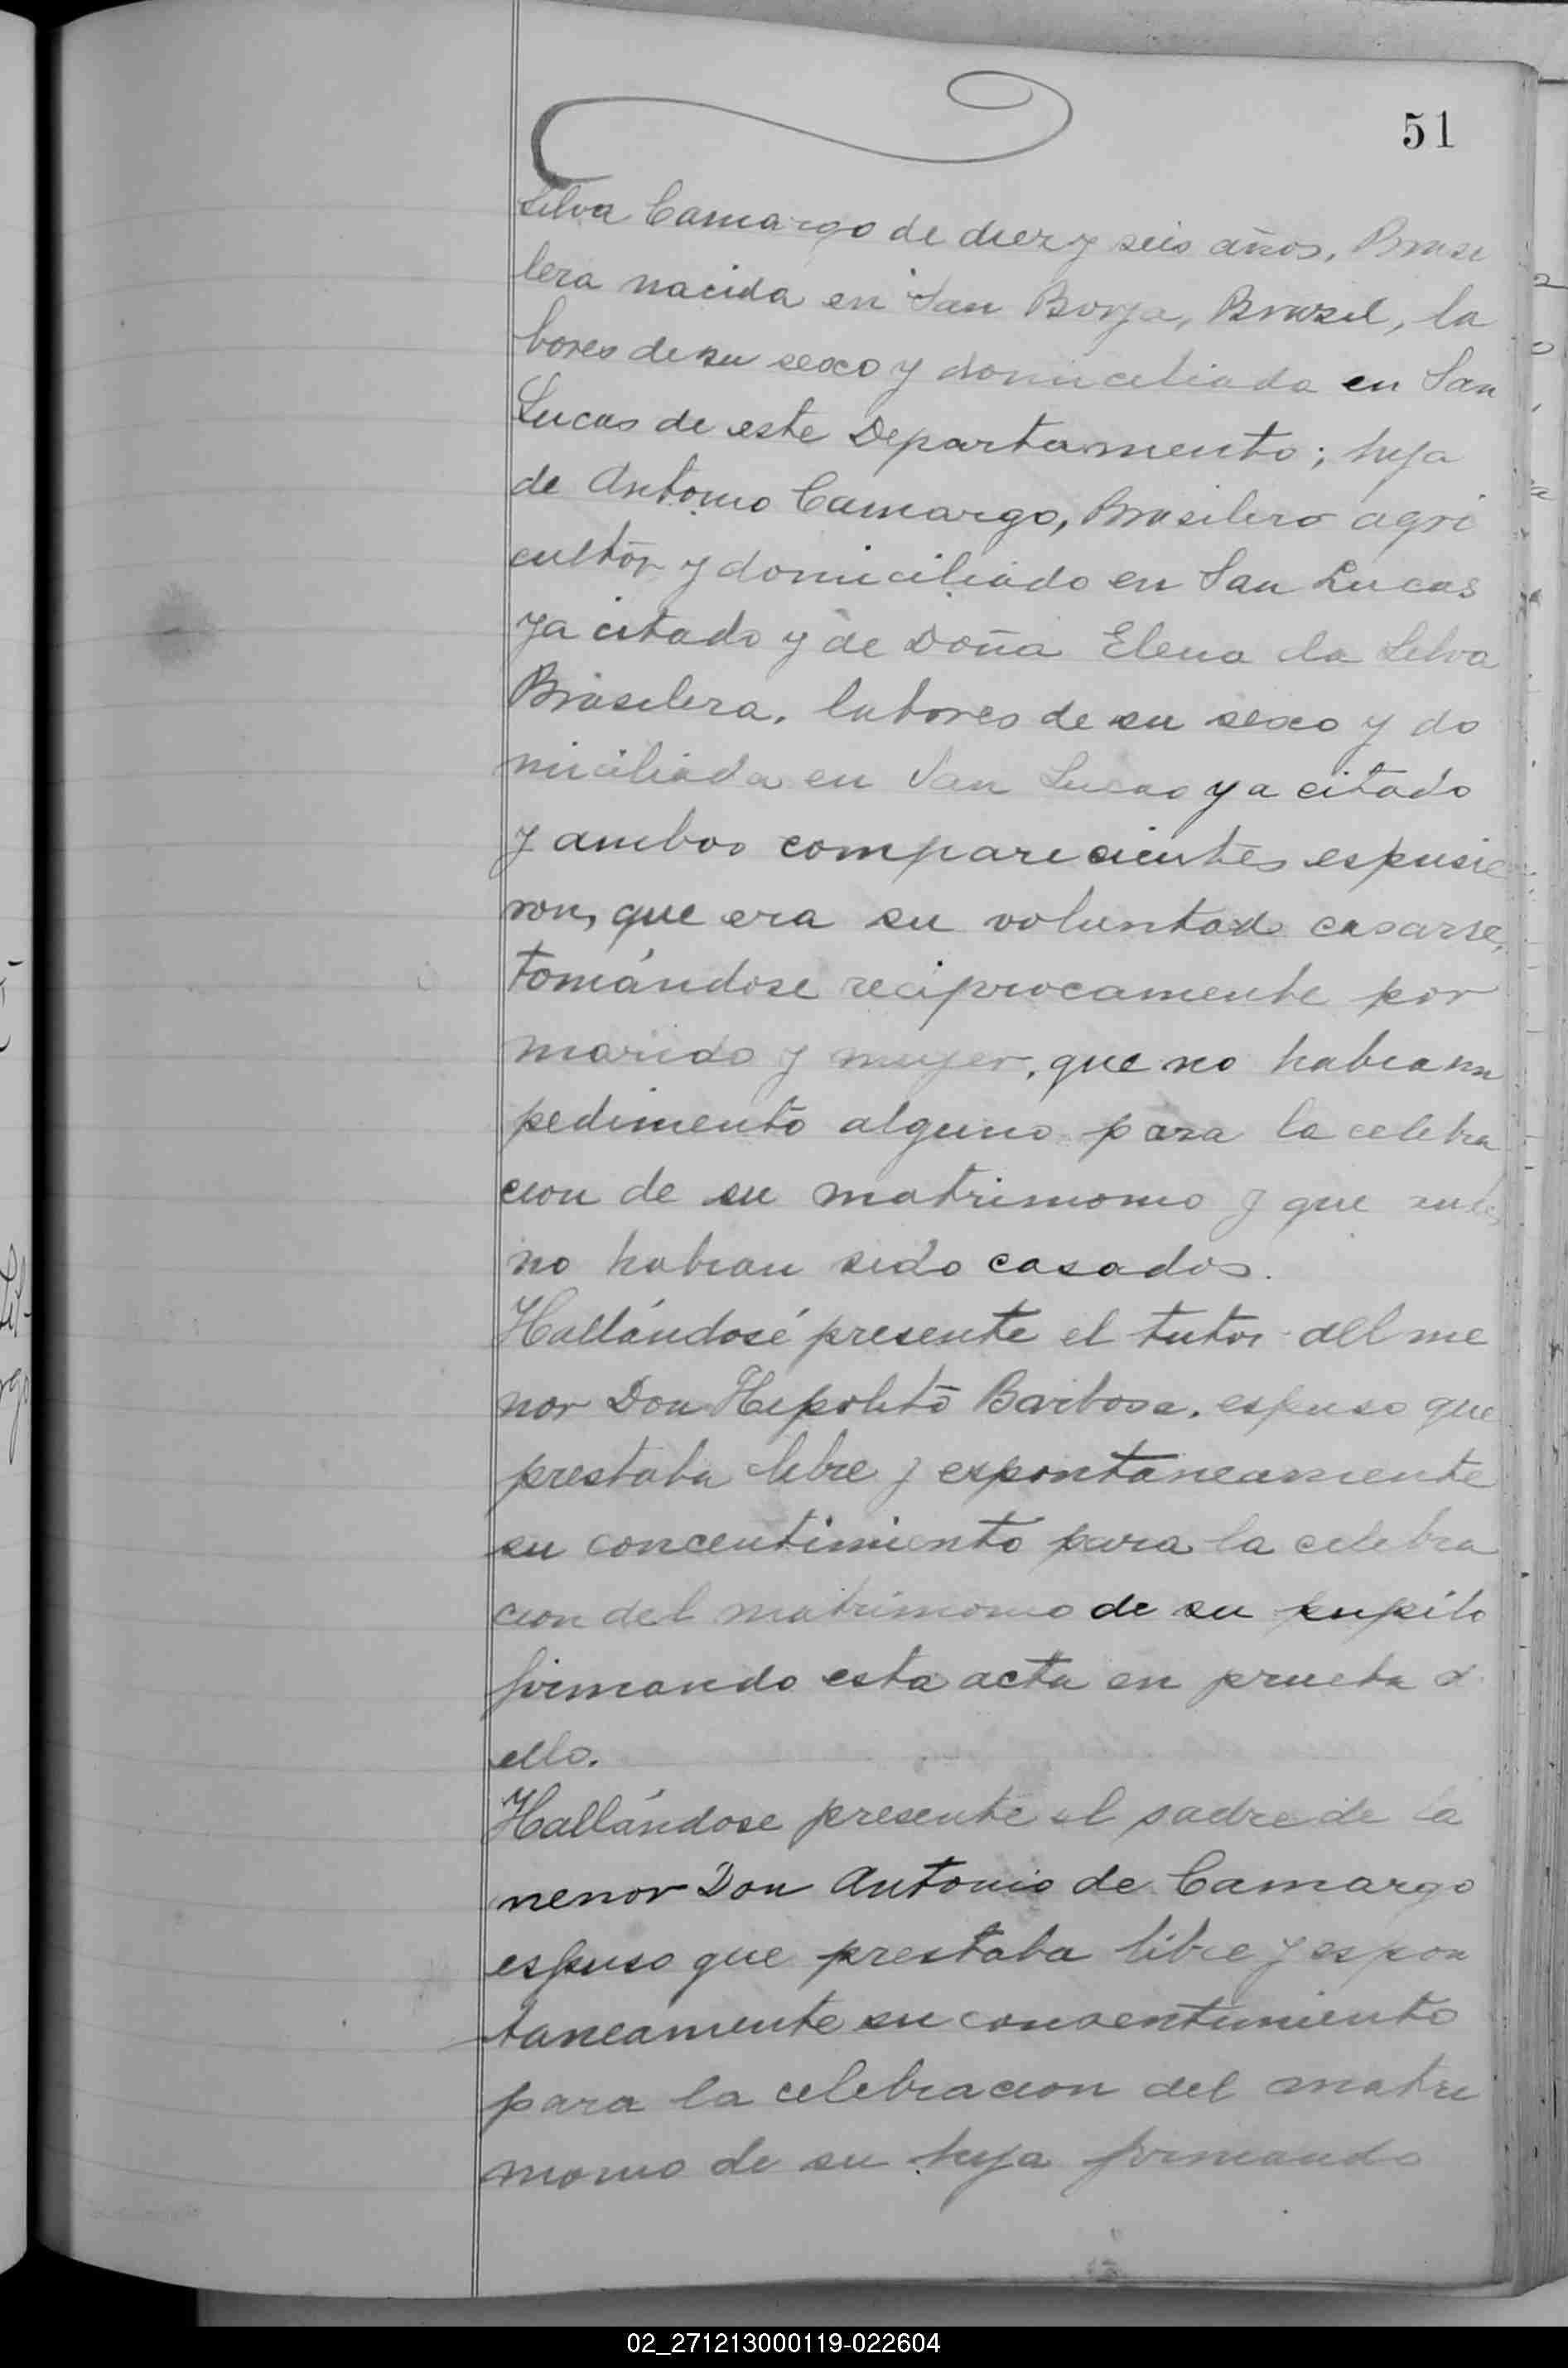 51
Silva Camargo de diez y seis años, Brasi
lera nacida en San Borja, Brazil, la
bores de su sexo y domiciliada en San
Lucas de este Departamento; hija
de Antonio Camargo, Brasilero agri
cultor y domiciliado en San Lucas
ya citado y de Doña Elena da Silva
Brasilera, labores de su sexo y do
miciliada en San Lucas ya citado
y ambos comparecientes espusie
ron, que era su voluntad casarse,
tomándose reciprocamente por
marido y mujer, que no habia im
pedimento alguno para la celebra
cion de su matrimonio y que antes
no habian sido casados.
Hallándosé presente el tutor del me
nor Don Hipolito Barbosa, espuso que
prestaba libre y espontaneamente
su concentimiento para la celebra
cion del matrimonio de su pupilo
firmando esta acta en prueba d
ello.
Hallándose presente el padre de la
menor Don Antonio de Camargo
espuso que prestaba libre y espon
taneamente su consentimiento
para la celebracion del matri
monio de su hija firmando
02_271213000119-022604